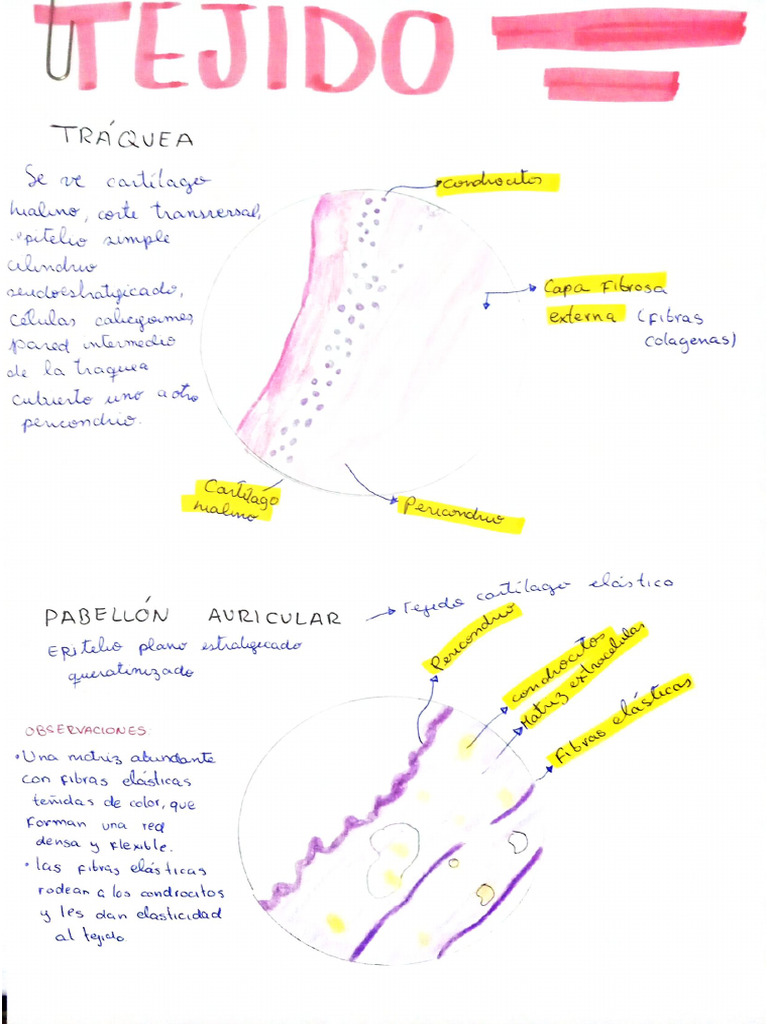 TEJIDO
TRÁQUEA
Se ve cartílago
hialino, corte transversal,
epitelio simple
cilindrio
seudoestratificado,
células caliciformes,
pared intermedio
de la traquea
cubierto uno a otro
pericondrio.
condrocitos
Capa Fibrosa
externa (fibras
colagenas)
Cartílago
hialino
Pericondrio
PABELLÓN AURICULAR → Tejido cartílago elástico
Epitelio plano estratificado
queratinizado
Pericondrio
condrocitos
Matriz extracelular
Fibras elásticas
OBSERVACIONES
• Una matriz abundante
con fibras elásticas
teñidas de color, que
forman una red
densa y flexible.
• las fibras elásticas
rodean a los condrocitos
y les dan elasticidad
al tejido